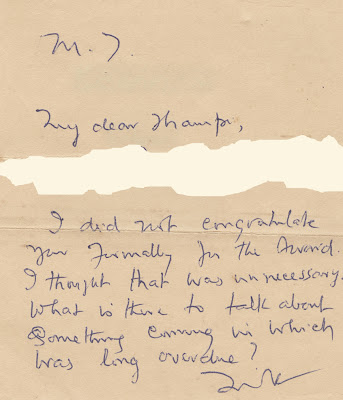 M. T.
My dear Thampi,
I did not congratulate
you formally for the Award.
I thought that was unnecessary.
What is there to talk about
something coming in which
was long overdue?